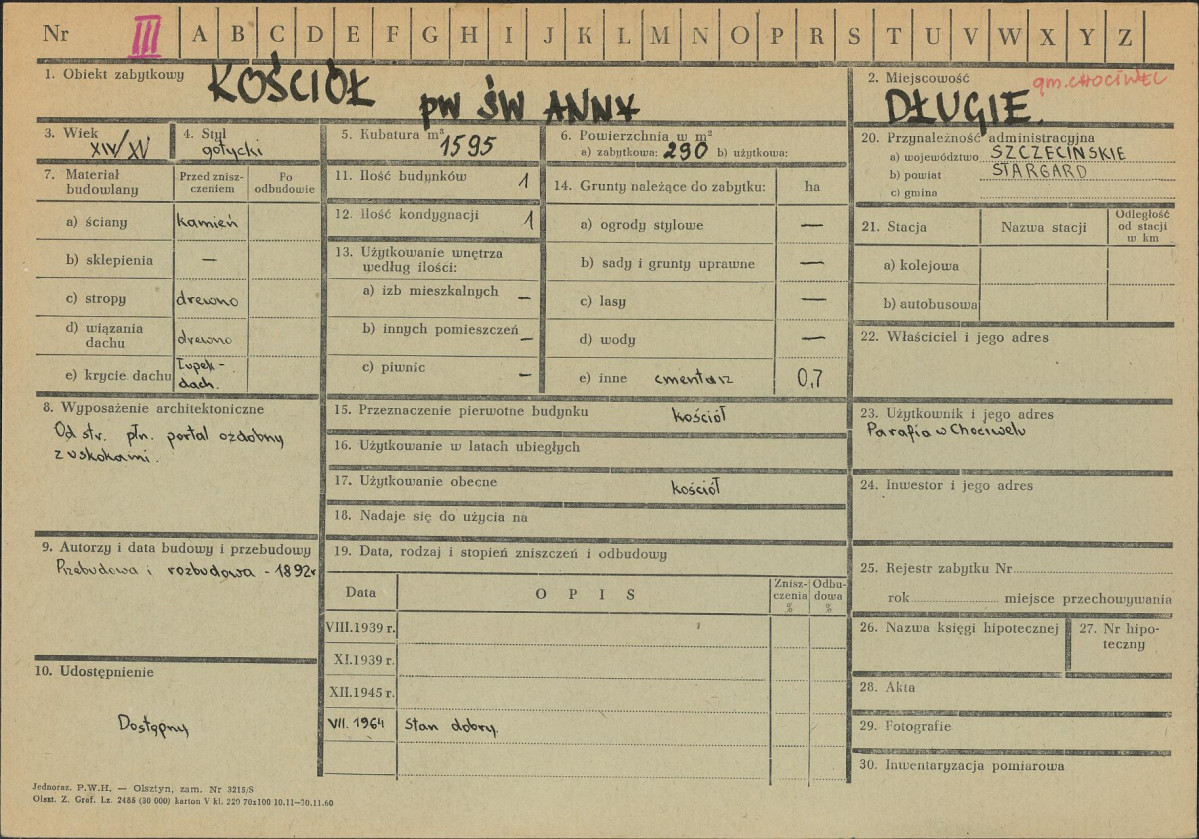 Nr III A B C D E F G H I J K L M N O P R S T U V W X Y Z
1. Obiekt zabytkowy KOŚCIÓŁ
PW ŚW ANNY
2. Miejscowość gm. CHOCIWEL
DŁUGIE.
3. Wiek
XIV/XV
4. Styl
gotycki
5. Kubatura m³
1595
6. Powierzchnia w m²
a) zabytkowa: 290 b) użytkowa:
20. Przynależność administracyjna
a) województwo SZCZECIŃSKIE
b) powiat STARGARD
c) gmina
7. Materiał
budowlany
Przed znisz-
czeniem
Po
odbudowie
a) ściany kamień
b) sklepienia —
c) stropy drewno
d) wiązania
dachu drewno
e) krycie dachu Łupek-
dach.
11. Ilość budynków 1
12. Ilość kondygnacji 1
13. Użytkowanie wnętrza
według ilości:
a) izb mieszkalnych —
b) innych pomieszczeń —
c) piwnic —
14. Grunty należące do zabytku: ha
a) ogrody stylowe —
b) sady i grunty uprawne —
c) lasy —
d) wody —
e) inne cmentarz 0,7
21. Stacja Nazwa stacji
Odległość
od stacji
w km
a) kolejowa
b) autobusowa
22. Właściciel i jego adres
8. Wyposażenie architektoniczne
Od str. płn. portal ozdobny
z uskokami.
15. Przeznaczenie pierwotne budynku kościół
16. Użytkowanie w latach ubiegłych
17. Użytkowanie obecne kościół
18. Nadaje się do użycia na
23. Użytkownik i jego adres
Parafia w Chociwelu
24. Inwestor i jego adres
9. Autorzy i data budowy i przebudowy
Przebudowa i rozbudowa - 1892r
19. Data, rodzaj i stopień zniszczeń i odbudowy
Data O P I S
Znisz-
czenia
%
Odbu-
dowa
%
VIII.1939 r.
XI.1939 r.
XII.1945 r.
VII. 1964 Stan dobry.
25. Rejestr zabytku Nr
rok miejsce przechowywania
26. Nazwa księgi hipotecznej
27. Nr hipo-
teczny
28. Akta
29. Fotografie
30. Inwentaryzacja pomiarowa
10. Udostępnienie
Dostępny
Jednoraz. P.W.H. — Olsztyn, zam. Nr 3215/S
Olszt. Z. Graf. Lz. 2485 (30 000) karton V kl. 220 70x100 10.11—30.11.60